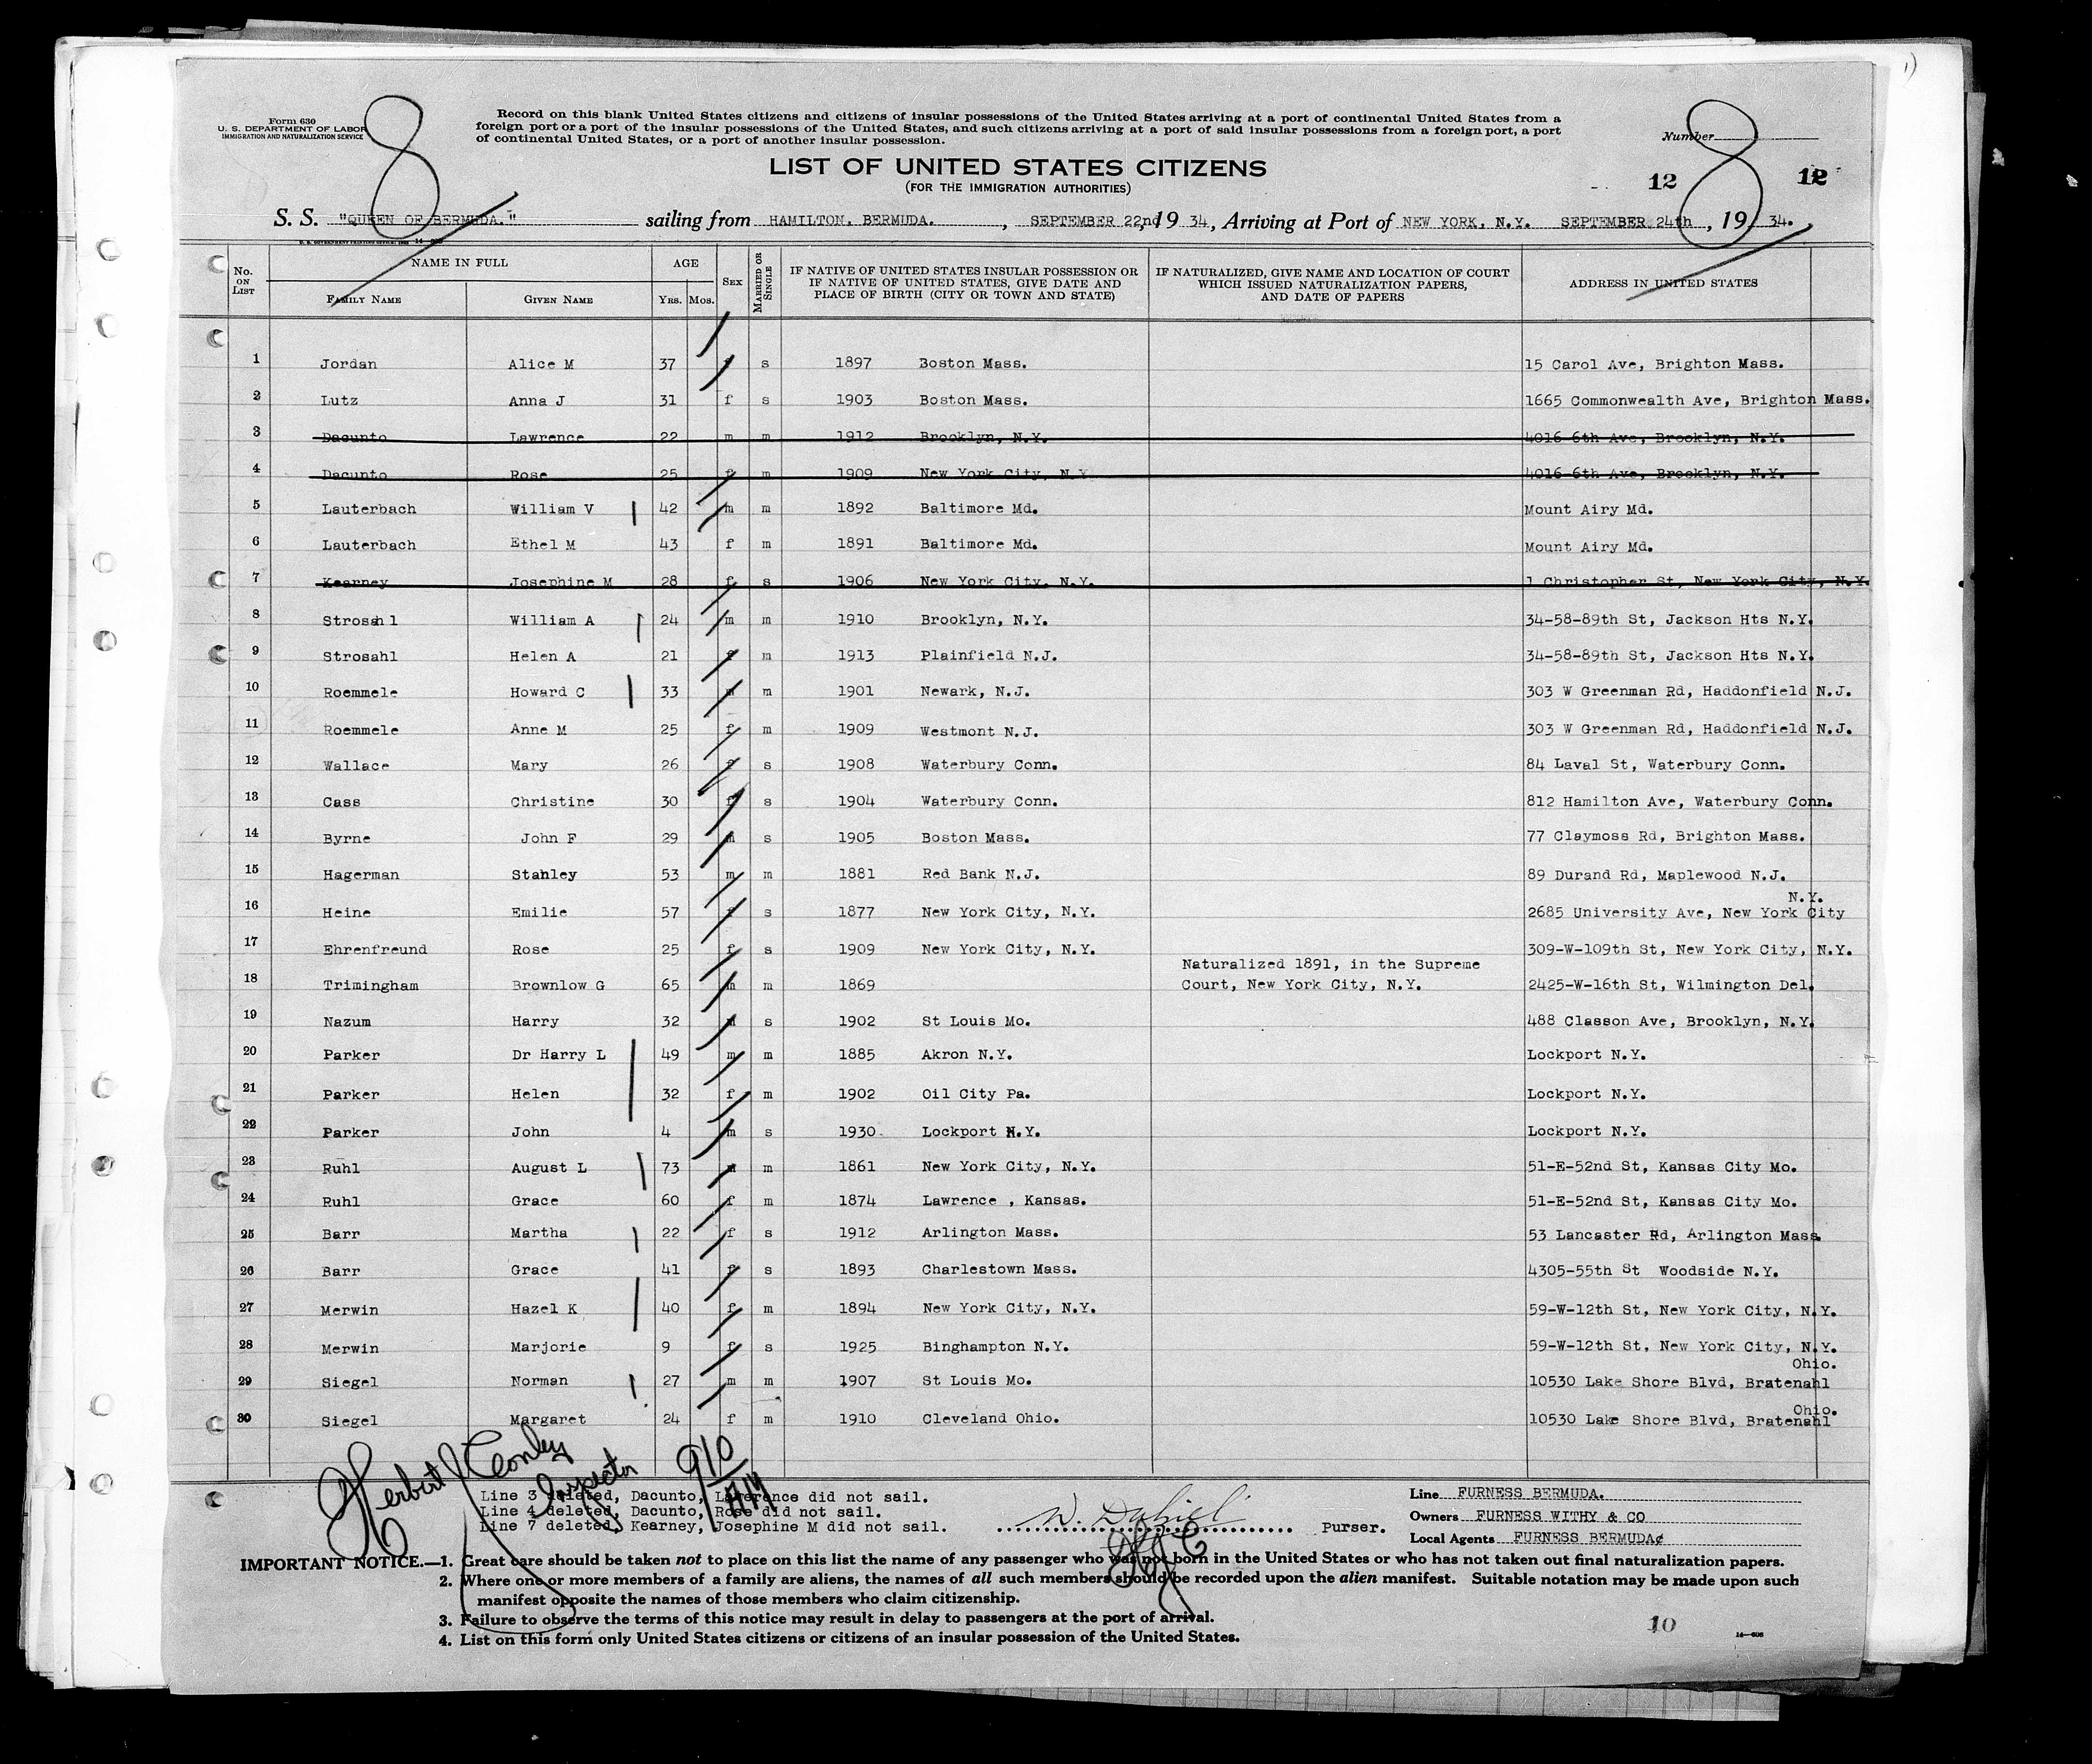 Form 630
U. S. DEPARTMENT OF LABOR
IMMIGRATION AND NATURALIZATION SERVICE
8
Record on this blank United States citizens and citizens of insular possessions of the United States arriving at a port of continental United States from a
foreign port or a port of the insular possessions of the United States, and such citizens arriving at a port of said insular possessions from a foreign port, a port
of continental United States, or a port of another insular possession.
Number
8
LIST OF UNITED STATES CITIZENS
(FOR THE IMMIGRATION AUTHORITIES)
12 12
S. S. "QUEEN OF BERMUDA." sailing from HAMILTON, BERMUDA. , SEPTEMBER 22nd, 19 34, Arriving at Port of NEW YORK, N.Y. SEPTEMBER 24th , 19 34.
No. ON LIST NAME IN FULL AGE SEX MARRIED OR SINGLE IF NATIVE OF UNITED STATES INSULAR POSSESSION OR IF NATIVE OF UNITED STATES, GIVE DATE AND PLACE OF BIRTH (CITY OR TOWN AND STATE) IF NATURALIZED, GIVE NAME AND LOCATION OF COURT WHICH ISSUED NATURALIZATION PAPERS, AND DATE OF PAPERS ADDRESS IN UNITED STATES
FAMILY NAME GIVEN NAME YRS. MOS.
1 Jordan Alice M 37 f s 1897 Boston Mass. 15 Carol Ave, Brighton Mass.
2 Lutz Anna J 31 f s 1903 Boston Mass. 1665 Commonwealth Ave, Brighton Mass.
3 Dacunto Lawrence 22 m m 1912 Brooklyn, N.Y. 4016-6th Ave, Brooklyn, N.Y.
4 Dacunto Rose 25 f m 1909 New York City, N.Y 4016-6th Ave, Brooklyn, N.Y.
5 Lauterbach William V 42 m m 1892 Baltimore Md. Mount Airy Md.
6 Lauterbach Ethel M 43 f m 1891 Baltimore Md. Mount Airy Md.
7 Kearney Josephine M 28 f s 1906 New York City, N.Y. 1 Christopher St, New York City, N.Y.
8 Strosahl William A 24 m m 1910 Brooklyn, N.Y. 34-58-89th St, Jackson Hts N.Y.
9 Strosahl Helen A 21 f m 1913 Plainfield N.J. 34-58-89th St, Jackson Hts N.Y.
10 Roemmele Howard C 33 m m 1901 Newark, N.J. 303 W Greenman Rd, Haddonfield N.J.
11 Roemmele Anne M 25 f m 1909 Westmont N.J. 303 W Greenman Rd, Haddonfield N.J.
12 Wallace Mary 26 f s 1908 Waterbury Conn. 84 Laval St, Waterbury Conn.
13 Cass Christine 30 f s 1904 Waterbury Conn. 812 Hamilton Ave, Waterbury Conn.
14 Byrne John F 29 m s 1905 Boston Mass. 77 Claymoss Rd, Brighton Mass.
15 Hagerman Stanley 53 m m 1881 Red Bank N.J. 89 Durand Rd, Maplewood N.J.
16 Heine Emilie 57 f s 1877 New York City, N.Y. 2685 University Ave, New York City N.Y.
17 Ehrenfreund Rose 25 f s 1909 New York City, N.Y. 309-W-109th St, New York City, N.Y.
18 Trimingham Brownlow G 65 m m 1869 Naturalized 1891, in the Supreme Court, New York City, N.Y. 2425-W-16th St, Wilmington Del.
19 Nazum Harry 32 m s 1902 St Louis Mo. 488 Classon Ave, Brooklyn, N.Y.
20 Parker Dr Harry L 49 m m 1885 Akron N.Y. Lockport N.Y.
21 Parker Helen 32 f m 1902 Oil City Pa. Lockport N.Y.
22 Parker John 4 m s 1930 Lockport N.Y. Lockport N.Y.
23 Ruhl August L 73 m m 1861 New York City, N.Y. 51-E-52nd St, Kansas City Mo.
24 Ruhl Grace 60 f m 1874 Lawrence , Kansas. 51-E-52nd St, Kansas City Mo.
25 Barr Martha 22 f s 1912 Arlington Mass. 53 Lancaster Rd, Arlington Mass.
26 Barr Grace 41 f s 1893 Charlestown Mass. 4305-55th St Woodside N.Y.
27 Merwin Hazel K 40 f m 1894 New York City, N.Y. 59-W-12th St, New York City, N.Y.
28 Merwin Marjorie 9 f s 1925 Binghampton N.Y. 59-W-12th St, New York City, N.Y.
29 Siegel Norman 27 m m 1907 St Louis Mo. 10530 Lake Shore Blvd, Bratenahl Ohio.
30 Siegel Margaret 24 f m 1910 Cleveland Ohio. 10530 Lake Shore Blvd, Bratenahl Ohio.
Herbert J Conley
Inspector
910
Line 3 deleted, Dacunto, Lawrence did not sail.
Line 4 deleted, Dacunto, Rose did not sail.
Line 7 deleted, Kearney, Josephine M did not sail.
W. Dalziel Purser.
HJC
Line FURNESS BERMUDA.
Owners FURNESS WITHY & CO
Local Agents FURNESS BERMUDA¢
IMPORTANT NOTICE.—1. Great care should be taken not to place on this list the name of any passenger who was not born in the United States or who has not taken out final naturalization papers.
2. Where one or more members of a family are aliens, the names of all such members should be recorded upon the alien manifest. Suitable notation may be made upon such
manifest opposite the names of those members who claim citizenship.
3. Failure to observe the terms of this notice may result in delay to passengers at the port of arrival.
4. List on this form only United States citizens or citizens of an insular possession of the United States.
10